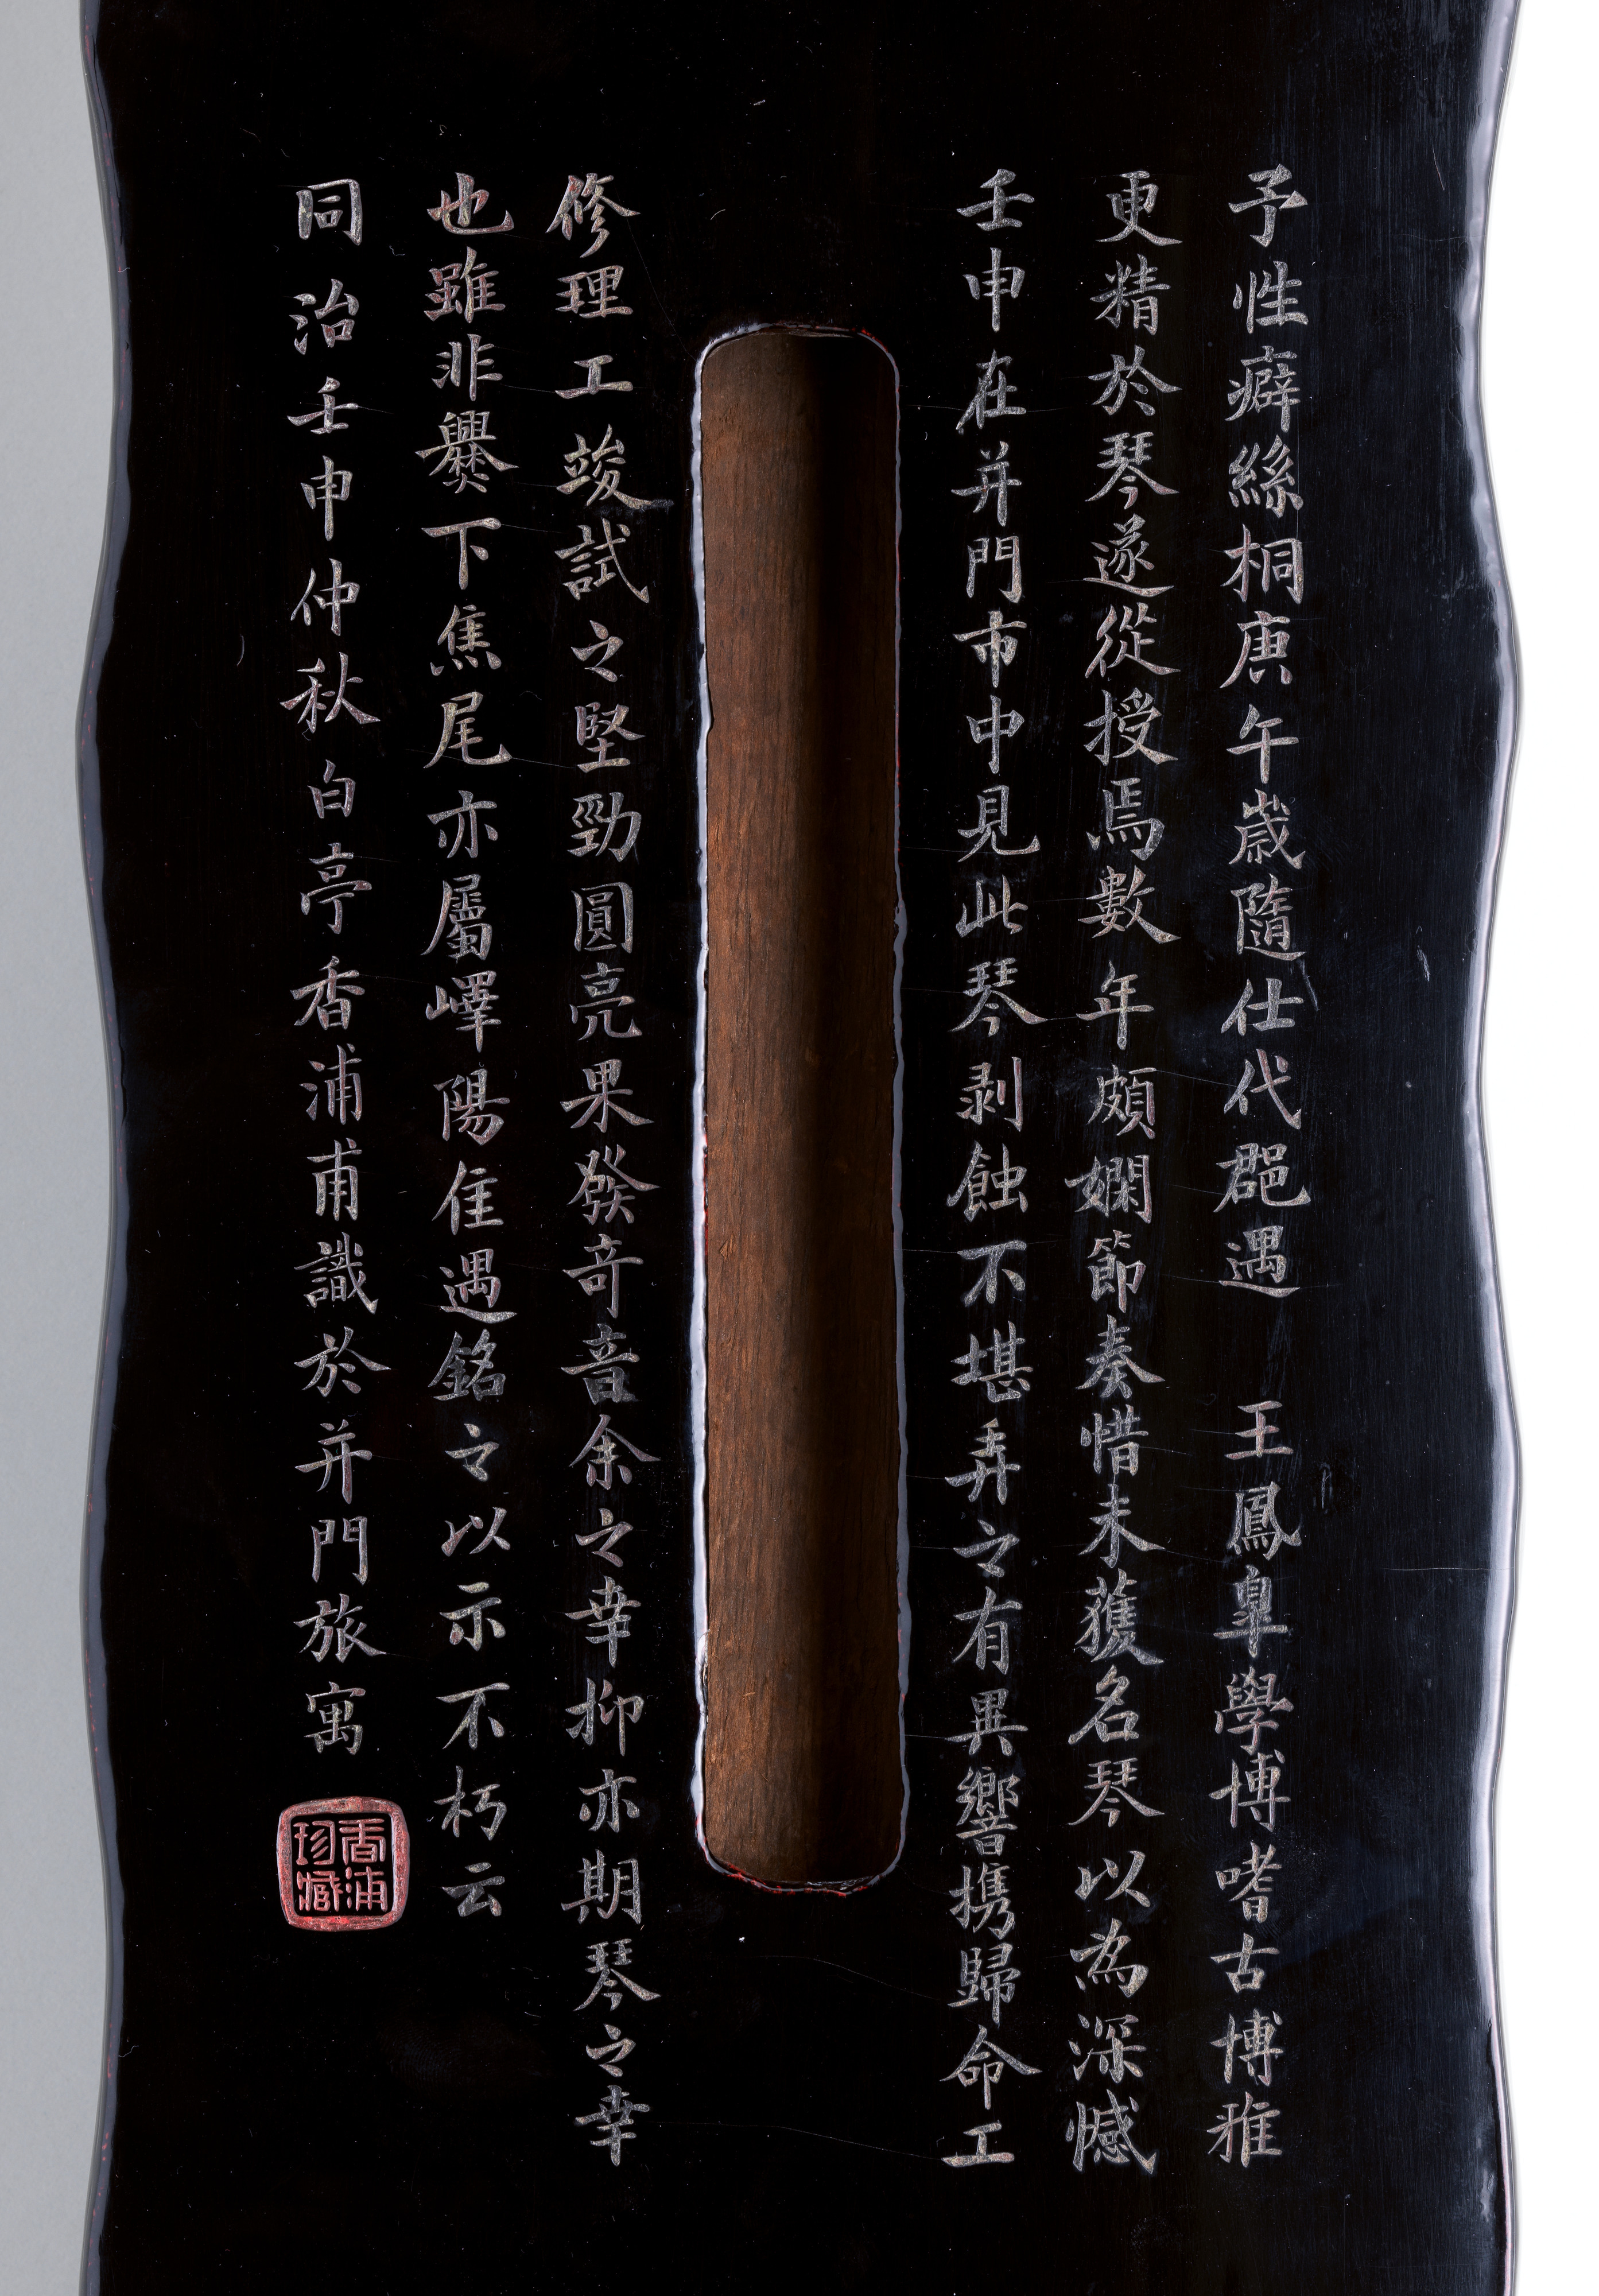 予性癖絲桐庚午歲隨仕代郡遇　王鳳臯學博嗜古博雅
更精於琴遂從授焉數年頗嫻節奏惜未獲名琴以為深憾
壬申在并門市中見此琴剥蝕不堪弄之有異響携歸命工
修理工竣試之堅勁圓亮果發奇音余之幸抑亦期琴之幸
也雖非爨下焦尾亦屬嶧陽隹遇銘之以示不朽云
同治壬申仲秋白亭香浦甫識於并門旅寓
香浦珍藏